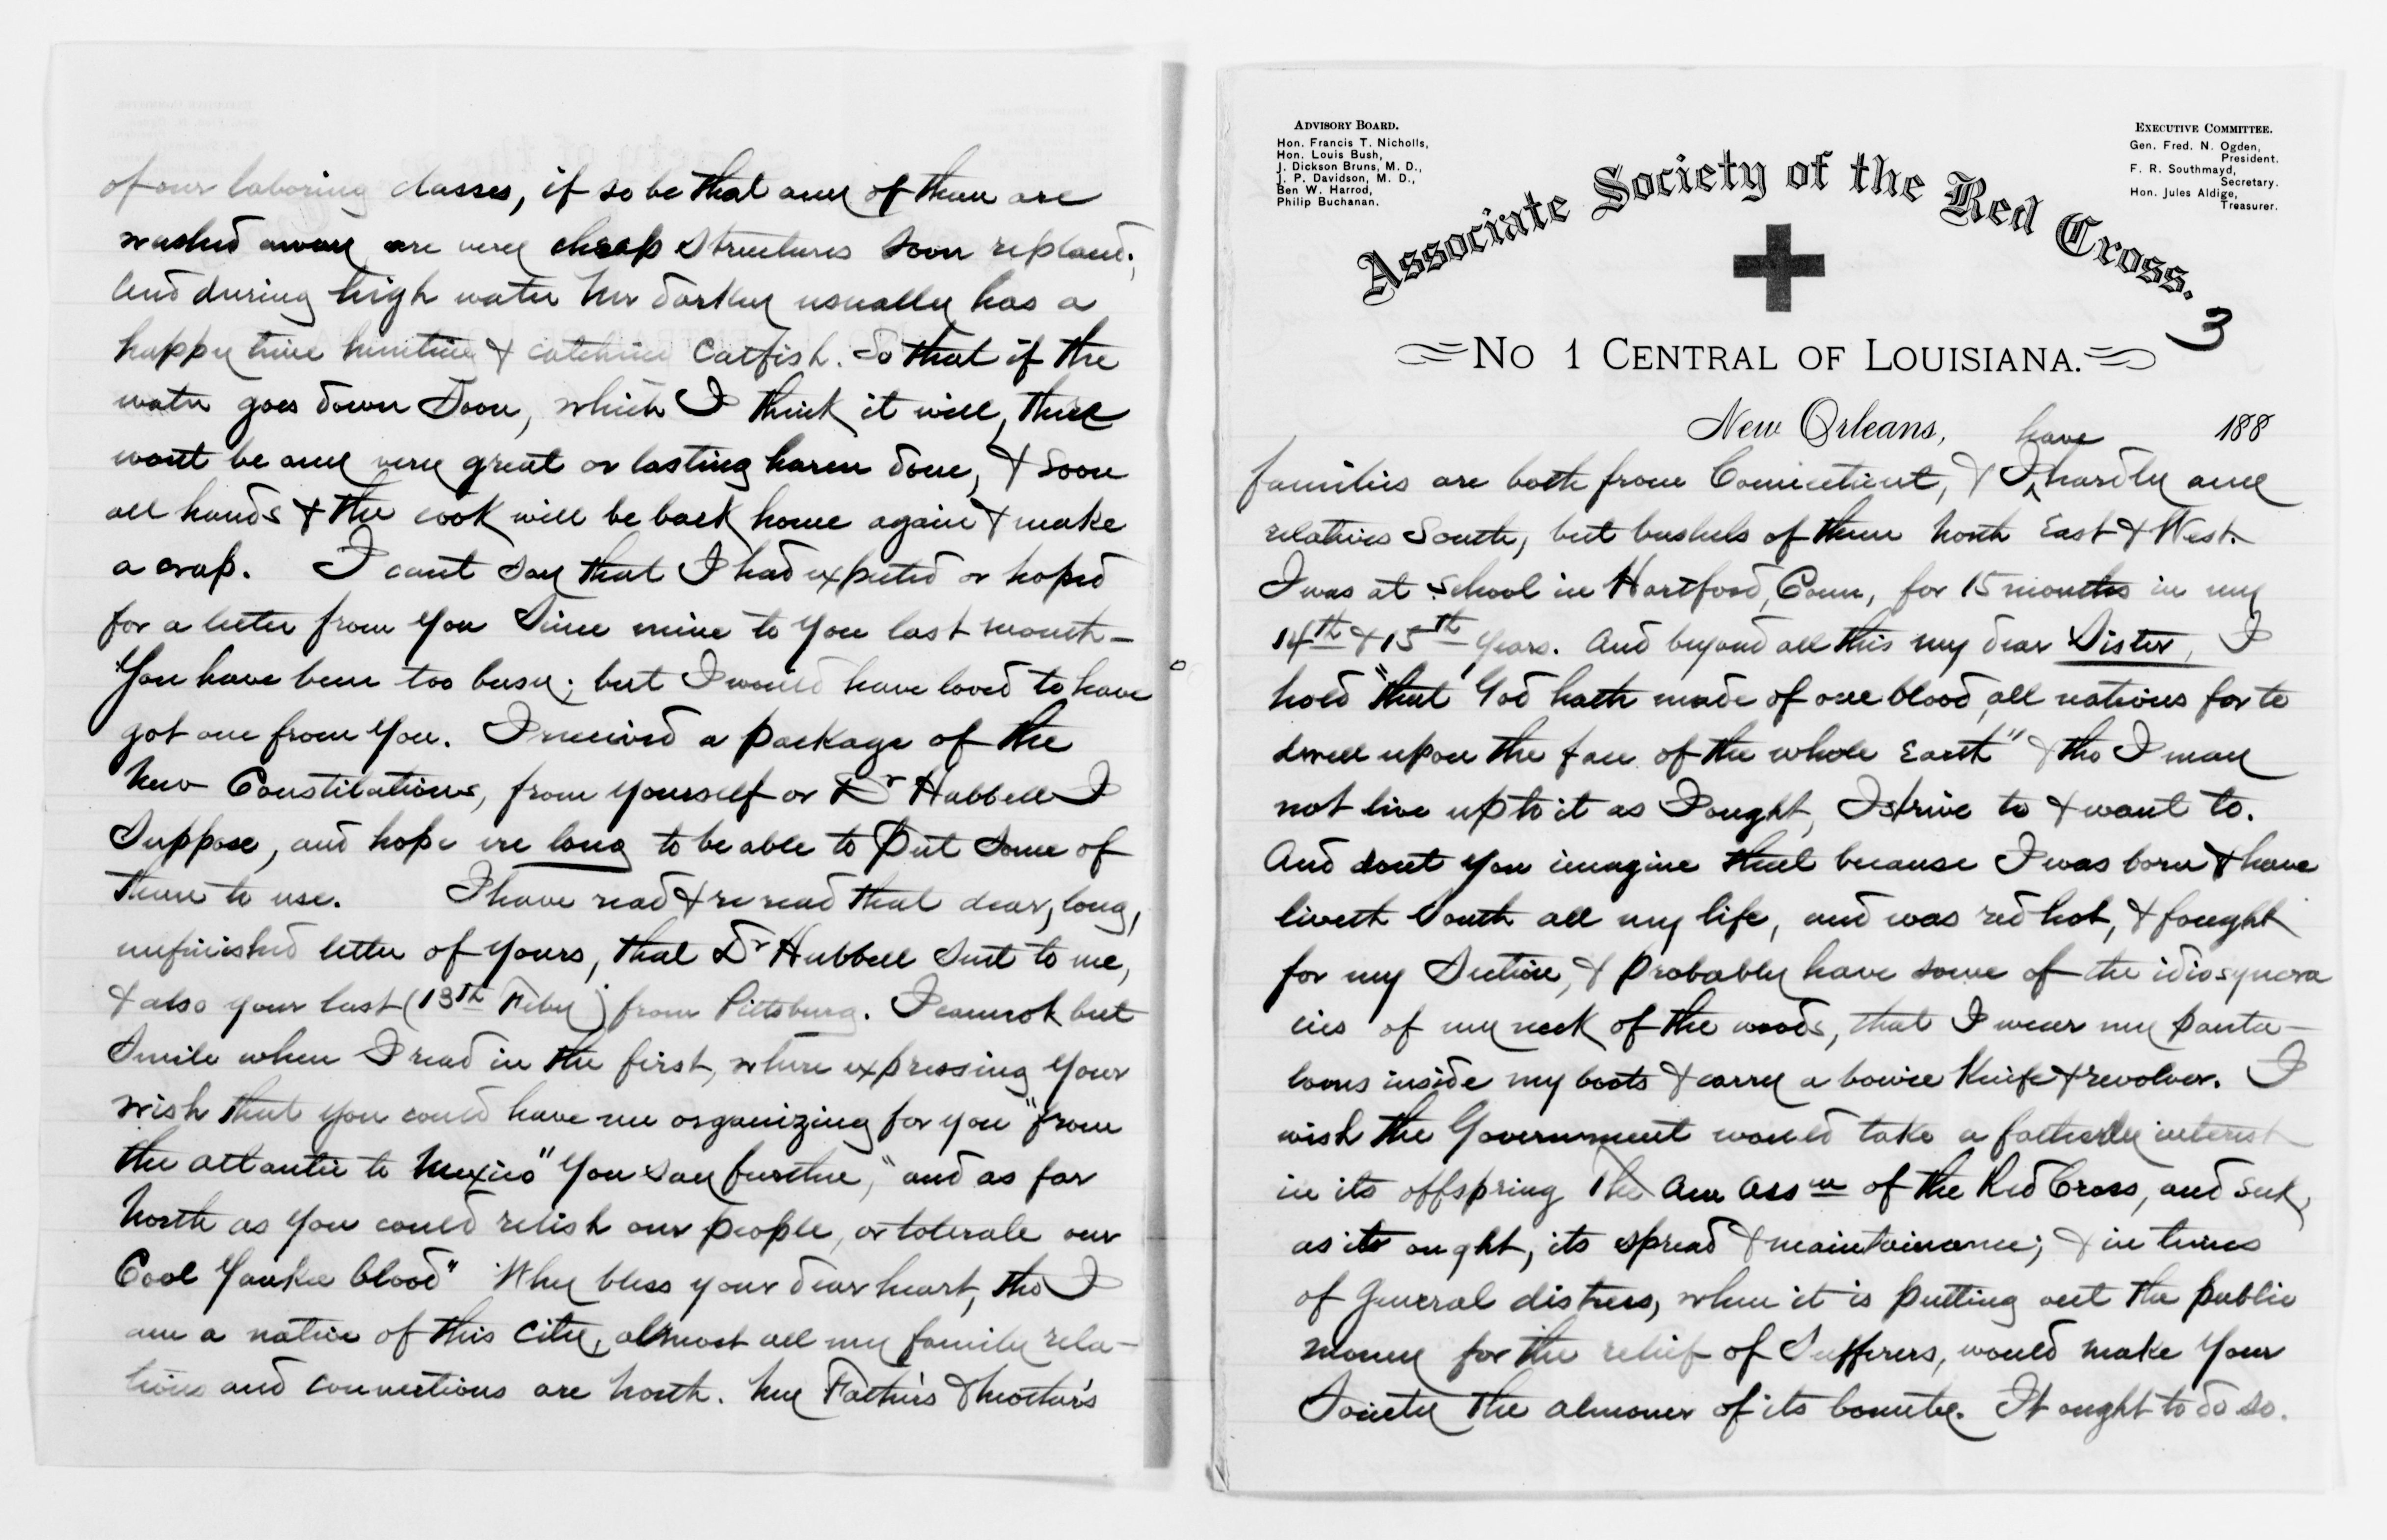 of our laboring classes, if so be that any of them are
washed away are very cheap structures soon replaced;
And during high water Mr darkey usually has a
happy time hunting & catching Catfish. So that if the
water goes down Soon, which I think it will, there
wont be any very great or lasting harm done, & soon
all hands & the cook will be back home again & make
a crop. I cant say that I had expected or hoped
for a letter from you Since mine to you last month—
You have been too busy; but I would have loved to have
got one from you. I received a package of the
New Constitutions, from yourself or Dr Hubbell I
Suppose, and hope ere long to be able to put some of
them to use. I have read & re read that dear, long,
unfinished letter of yours, that Dr Hubbell Sent to me,
& also your last (13th Feby) from Pittsburg. I cannot but
Smile when I read in the first, where expressing your
wish that you could have me organizing for you "from
the atlantic to Mexico" you say further, "and as far
North as you could relish our people, or tolerate our
Cool Yankee blood" Why bless your dear heart, tho I
am a native of this city, almost all my family rela—
tions and connections are North. My Father's & Mother's
ADVISORY BOARD.
Hon. Francis T. Nicholls,
Hon. Louis Bush,
J. Dickson Bruns, M. D.,
J. P. Davidson, M. D.,
Ben W. Harrod,
Philip Buchanan.
EXECUTIVE COMMITTEE.
Gen. Fred. N. Ogden,
President.
F. R. Southmayd,
Secretary.
Hon. Jules Aldige,
Treasurer.
Associate Society of the Red Cross.
3
No 1 CENTRAL OF LOUISIANA.
New Orleans, 188
have
families are both from Connecticut, & I hardly any
relatives South, but bushels of them North East & West.
I was at School in Hartford, Conn, for 15 months in my
14th & 15th years. And beyond all this my dear Sister, I
hold "that God hath made of one blood, all nations for to
dwell upon the face of the whole Earth" & tho I may
not live up to it as I ought, I strive to & want to.
And dont you imagine that because I was born & have
liveth South all my life, and was red hot, & fought
for my Section, & probably have some of the idiosyncra
cies of my neck of the woods, that I wear my panta—
loons inside my boots & carry a bowie Knife & revolver. I
wish the Government would take a fatherly interest
in its offspring The Am Assn of the Red Cross, and seek,
as it ought, its spread & maintainance; & in times
of General distress, when it is putting out the public
money for the relief of Sufferers, would make your
Society the almoner of its bounty. It ought to do so.